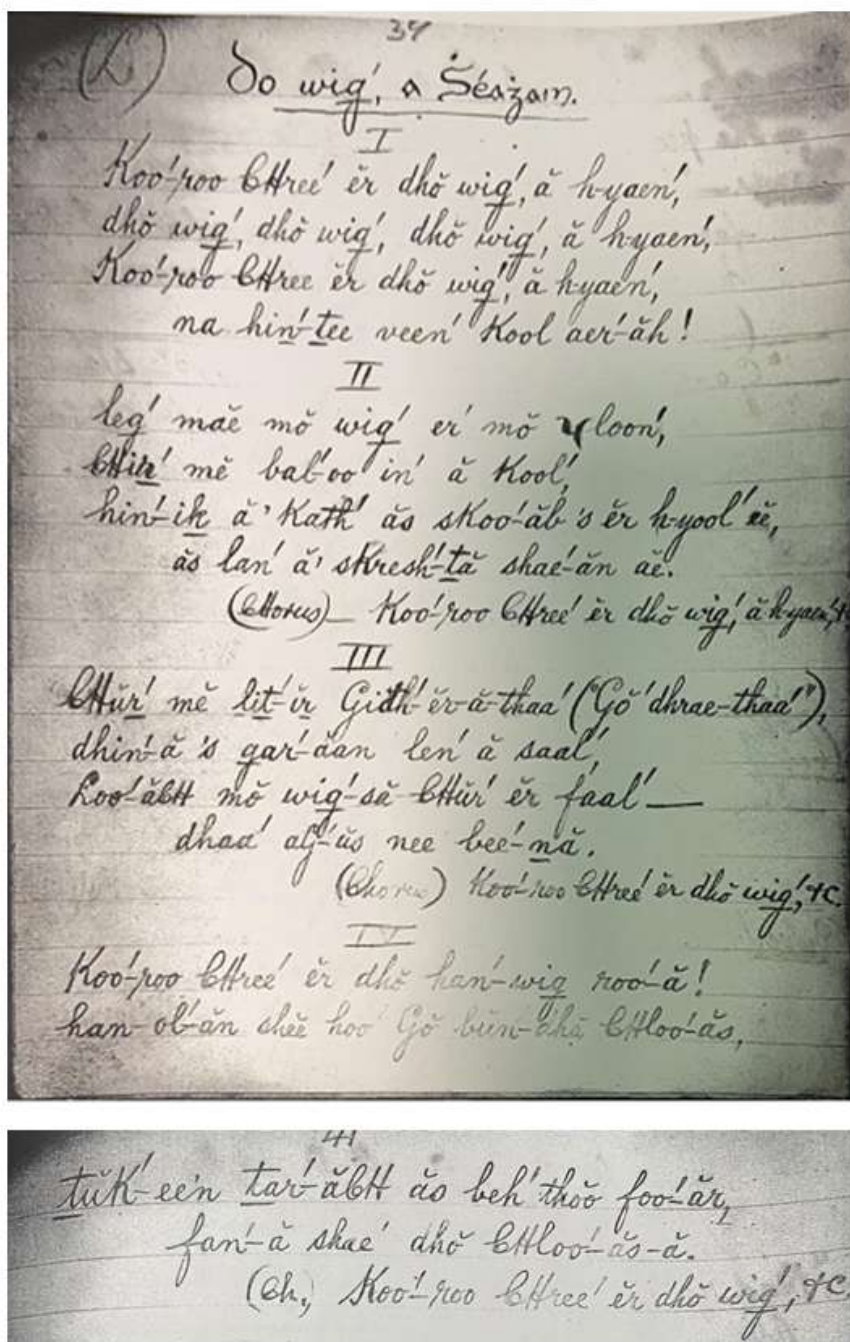 39
(L)
Do wig', a Ṡéażain.
I
Koo'-roo CHree' ĕr dhŏ wig', ă h-yaen',
dhŏ wig', dhŏ wig', dhŏ wig', ă h-yaen',
Koo'-roo CHree ĕr dhŏ wig', ă h-yaen',
na hin'-tee veen' Kool aer'-ăh!
II
leg' măĕ mŏ wig' er' mŏ loon',
CHir' mĕ bal'-oo in' ă Kool',
hin'-ik ă' Kath' ăs skoo'-ăb 's ĕr h-yool' ĕĕ,
ăs lan' ă' skresh'-tă shae'-ăn ăĕ.
(CHorus)— Koo'-roo CHree' ĕr dhŏ wig', ă h-yaen',
III
CHŭr' mĕ lit'-ir Gidh'-ĕr-ă-thaa' ("Gŏ' dhrae-thaa'"),
dhin'-ă 's gar'-ăan len' ă saal',
Loo'-ăbH mŏ wig'-să CHŭr' ĕr faal'—
dhaa' aG'-ŭs nee bee'-nă.
(Chorus) Koo'-roo CHree' ĕr dhŏ wig', &C.
IV
Koo'-roo CHree' ĕr dhŏ han'-wig roo'-ă!
han-ol'-ăn shĕĕ hoo' Gŏ bŭn-dhă CHloo'-ăs,
41
tŭk'-ee'n tar'-ăbH ăs beh' thŏŏ foo'-ăr,
fan'-ă shae' dhŏ CHloo'-ăs-ă.
(Ch.) Koo'-roo CHree' ĕr dhŏ wig', &C.